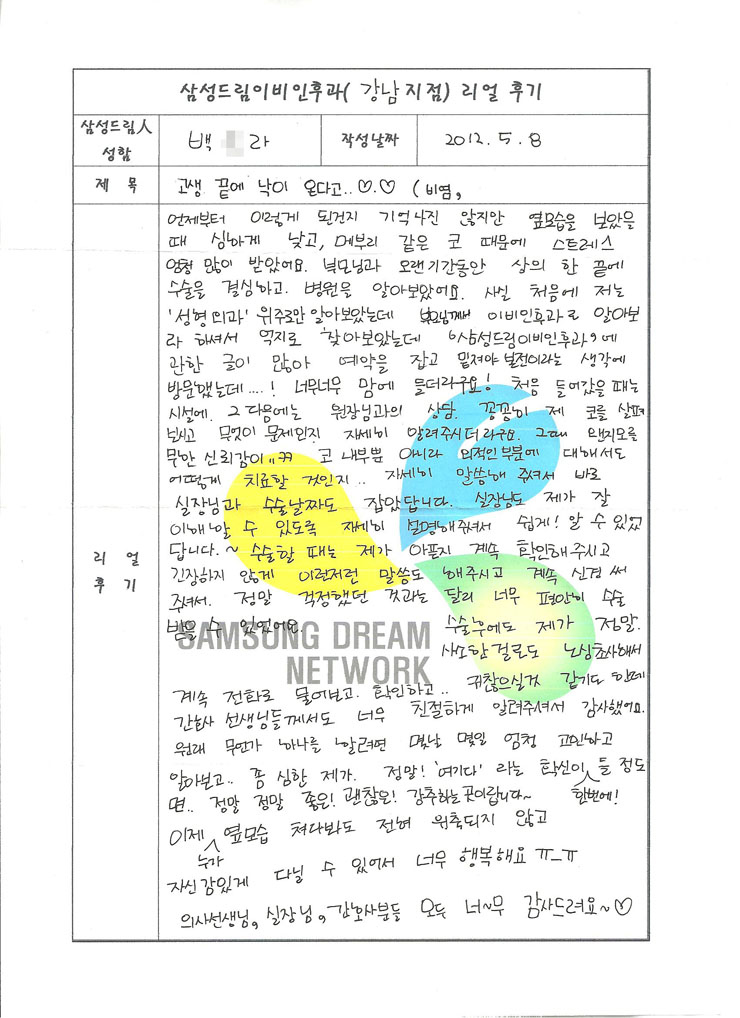 삼성드림이비인후과( 강남지점) 리얼 후기
삼성드림人 성함
백 라
작성날짜
2012. 5. 8
제 목
고생 끝에 낙이 온다고..♡.♡ (비염,
리얼 후기
언제부터 이렇게 된건지 기억나진 않지만 옆모습을 보았을
때 심하게 낮고, 메부리 같은 코 때문에 스트레스
엄청 많이 받았어요. 부모님과 오랜기간동안 상의 한 끝에
수술을 결심하고. 병원을 알아보았어요. 사실 처음에 저는
'성형외과' 위주로만 알아보았는데 부모님께서 이비인후과로 알아보
라 하셔서 억지로 찾아보았는데 '삼성드림이비인후과'에
관한 글이 많아 예약을 잡고 밑져야 본전이라는 생각에
방문했는데....! 너무너무 맘에 들더라구요! 처음 들어갔을 때는
시설에. 그 다음에는 원장님과의 상담. 꼼꼼히 제 코를 살펴
보시고 무엇이 문제인지 자세히 알려주시더라구요. 그때 왠지모를
무한 신뢰감이.. ㅋㅋ 코 내부뿐 아니라 외적인 부분에 대해서도
어떻게 치료할 것인지.. 자세히 말씀해 주셔서 바로
실장님과 수술날짜도 잡았답니다. 실장님도 제가 잘
이해 할 수 있도록 자세히 설명해주셔서 쉽게! 알 수 있었
답니다.~ 수술할 때는 제가 아픈지 계속 확인해주시고
긴장하지 않게 이런저런 말씀도 해주시고 계속 신경 써
주셔서. 정말 걱정했던 것과는 달리 너무 편안히 수술
받을 수 있었어요. 수술후에도 제가 정말.
SAMSUNG DREAM
사소한걸로도 노심초사해서
NETWORK
귀찮으실거 같기도 한데
계속 전화로 물어보고. 확인하고..
간호사 선생님들께서도 너무 친절하게 알려주셔서 감사했어요.
원래 무언가 하나를 하려면 몇날 몇일 엄청 고민하고
알아보고.. 쫌 심한 제가. 정말! '여기다' 라는 확신이 한번에! 들 정도
면.. 정말 정말 좋은! 괜찮은! 강추하는곳이랍니다~
이제 누가 옆모습 쳐다봐도 전혀 위축되지 않고
자신감있게 다닐 수 있어서 너무 행복해요 ㅠ_ㅠ
의사선생님, 실장님, 간호사분들 모두 너~무 감사드려요~♡